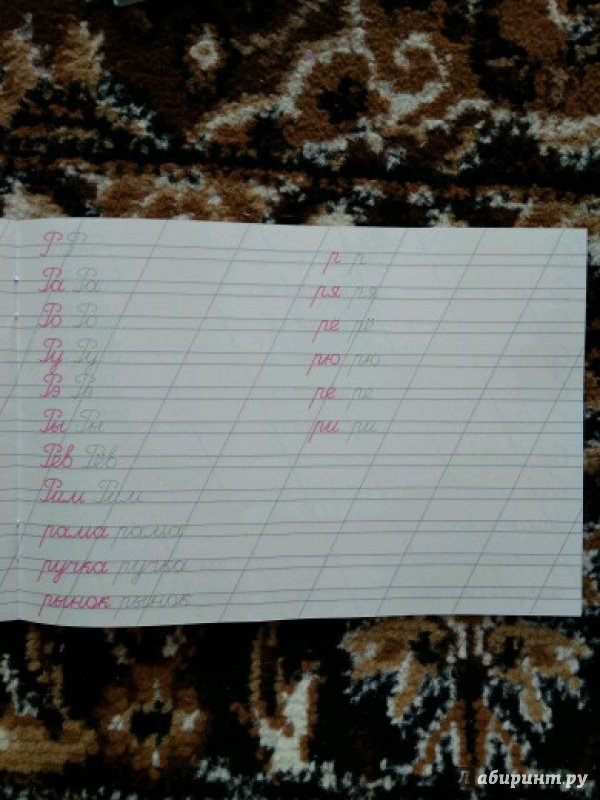 Р Р
Ра Ра
Ро Ро
Ру Ру
Рэ Рэ
Ры Ры
Рёв Рёв
Рим Рим
рама рама
ручка ручка
рынок рынок
р р
ря ря
рё рё
рю рю
ре ре
ри ри
Лабиринт.ру